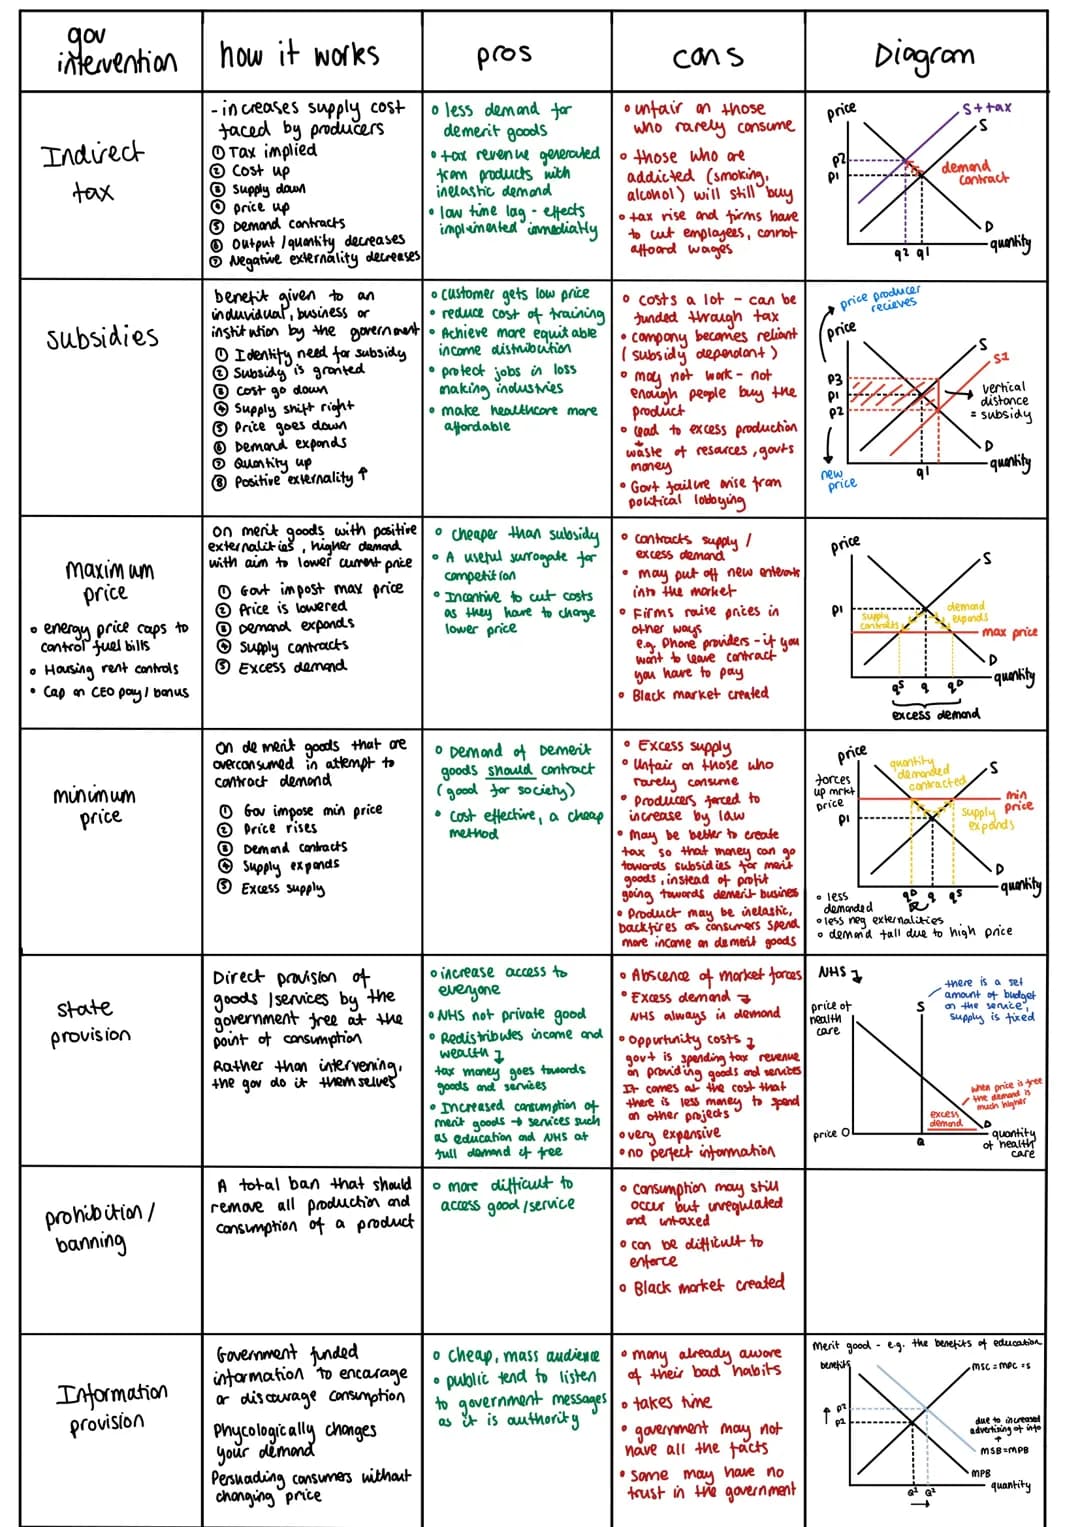 gov
intervention
how it works
pros
cons
Diagram
Indirect
tax
- increases supply cost
faced by producers
① Tax implied
② Cost up
③ Supply down
④ Price up
⑤ Demand contracts
⑥ Output / quantity decreases
⑦ Negative externality decreases
less demand for
demerit goods
tax revenue generated
from products with
inelastic demand
low time lag - effects
implemented immediatly
unfair on those
who rarely consume
those who are
addicted (smoking,
alcohol) will still buy
tax rise and firms have
to cut employees, cannot
afford wages
price
S + tax
S
P2
P1
demand
contract
D
quantity
q2 q1
subsidies
benefit given to an
individual, business or
institution by the government
① Identify need for subsidy
② Subsidy is granted
③ Cost go down
④ Supply shift right
⑤ Price goes down
⑥ Demand expands
⑦ Quantity up
⑧ Positive externality ↑
customer gets low price
reduce cost of training
Achieve more equitable
income distribution
protect jobs in loss
making industries
make healthcare more
affordable
costs a lot - can be
funded through tax
company becomes reliant
(subsidy dependant)
may not work - not
enough people buy the
product
lead to excess production
waste of resources, govts
money
Govt failure arise from
political lobbying
price producer
recieves
price
S
S2
P3
P1
P2
vertical
distance
= subsidy
D
quantity
q1
new
price
maximum
price
energy price caps to
control fuel bills
Housing rent controls
Cap on CEO pay / bonus
on merit goods with positive
externalities, higher demand
with aim to lower current price
① Govt impost max price
② Price is lowered
③ Demand expands
④ Supply contracts
⑤ Excess demand
cheaper than subsidy
A useful surrogate for
competition
Incentive to cut costs
as they have to charge
lower price
contracts supply /
excess demand
may put off new enterants
into the market
Firms raise prices in
other ways
e.g. Phone providers - if you
want to leave contract
you have to pay
Black market created
price
S
P1
supply
contracts
demand
expands
max price
D
quantity
qS q qD
excess demand
minimum
price
On de merit goods that are
overconsumed in attempt to
contract demand
① Gov impose min price
② Price rises
③ Demand contracts
④ Supply expands
⑤ Excess supply
Demand of Demerit
goods should contract
(good for society)
Cost effective, a cheap
method
Excess supply
Unfair on those who
rarely consume
Producers forced to
increase by law
may be better to create
tax so that money can go
towards subsidies for merit
goods, instead of profit
going towards demerit busines
Product may be inelastic,
backfires as consumers spend
more income on demerit goods
price
quantity
demanded
contracted
S
forces
up mrkt
price
min
price
P1
supply
expands
D
quantity
qD q qS
less
demanded
less neg externalities
demand fall due to high price
state
provision
Direct provision of
goods / services by the
government free at the
point of consumption
Rather than intervening,
the gov do it themselves
increase access to
everyone
NHS not private good
Redistributes income and
wealth
tax money goes towards
goods and services
Increased consumption of
merit goods → services such
as education and NHS at
full demand if free
Abscence of market forces
Excess demand
NHS always in demand
opportunity costs
govt is spending tax revenue
on providing goods and services
It comes at the cost that
there is less money to spend
on other projects
very expensive
no perfect information
NHS
there is a set
amount of budget
on the service,
supply is fixed
price of
health
care
S
when price is free
the demand is
much higher
excess
demand
D
price 0
Q
quantity
of health
care
prohibition /
banning
A total ban that should
remove all production and
consumption of a product
more difficult to
access good / service
consumption may still
occur but unregulated
and untaxed
can be difficult to
enforce
Black market created
Information
provision
Government funded
information to encourage
or discourage consumption
Phycologically changes
your demand
Persuading consumers without
changing price
cheap, mass audience
public tend to listen
to government messages
as it is authority
many already aware
of their bad habits
takes time
government may not
have all the facts
some may have no
trust in the government
merit good - e.g. the benefits of education
benefits
MSC = MPC = S
↑ P2
P1
due to increased
advertising of info
MSB=MPB
MPB
quantity
Q1 Q2